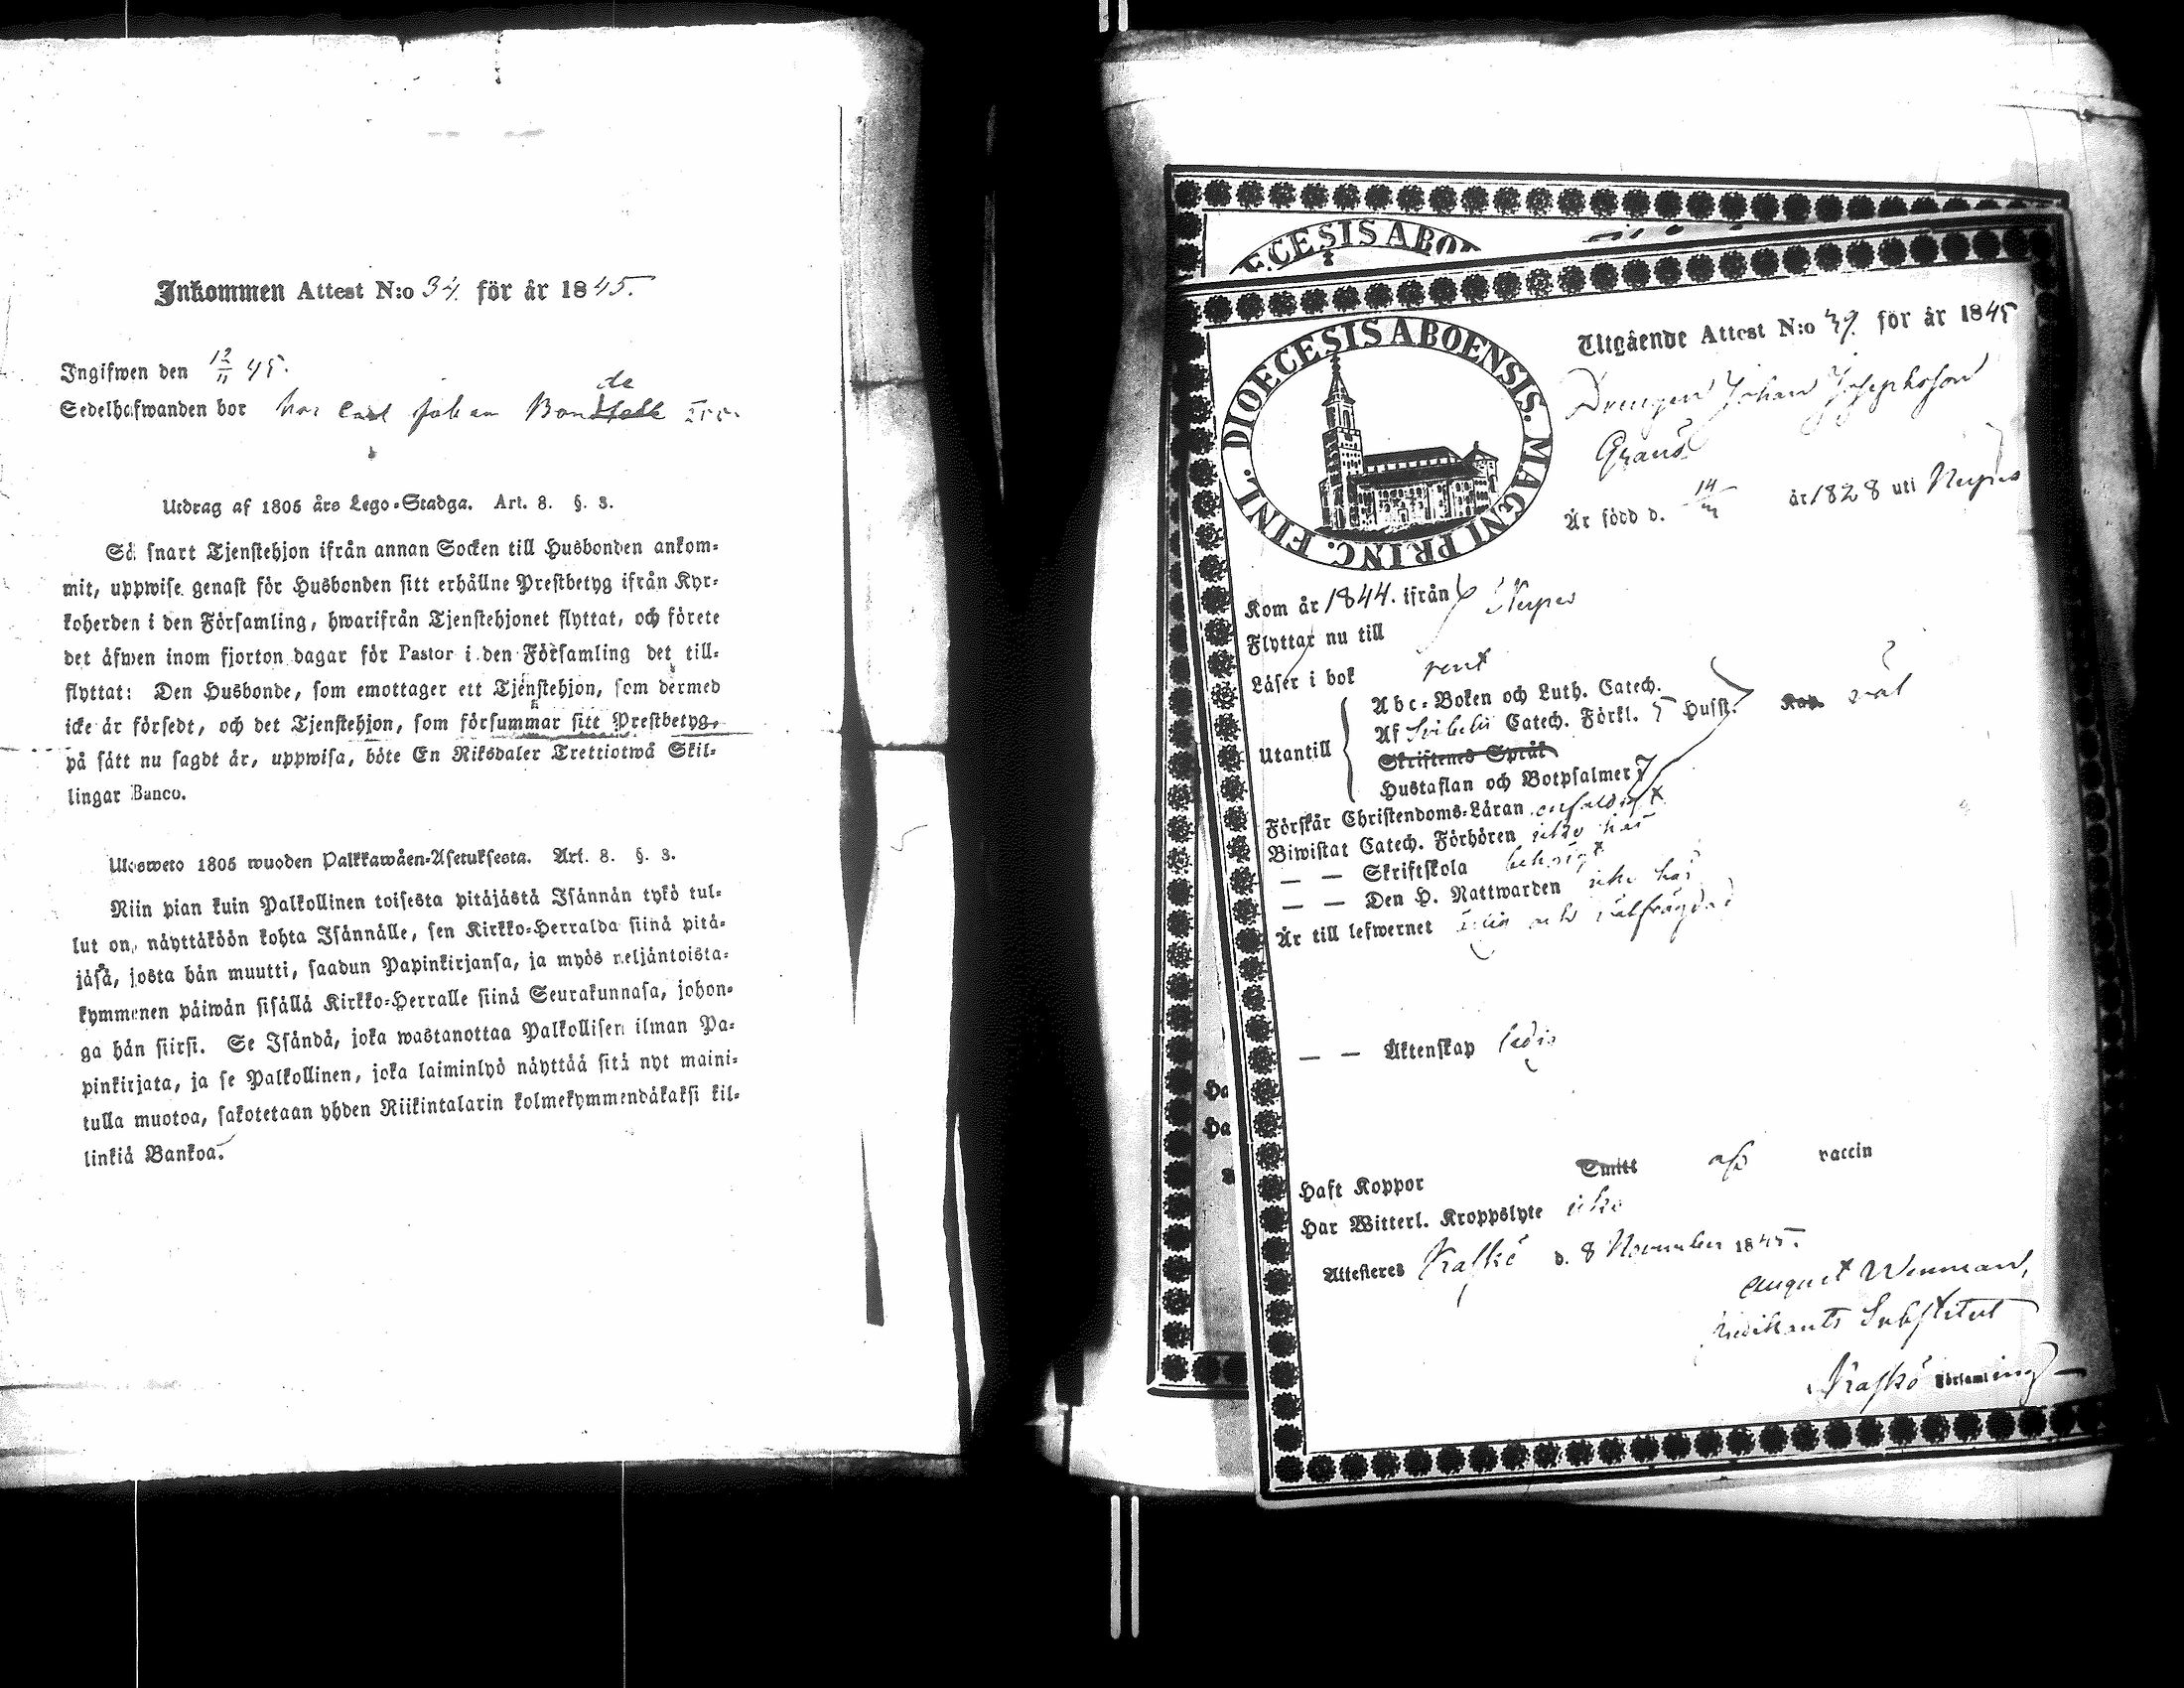 Inkommen Attest N:o 34. för år 1845.
Ingifwen den 12/11 45.
Sedelhafwanden bor hos Carl Johan Bonde
Utdrag af 1805 års Lego-Stadga. Art. 8. §. 3.
Så snart Tjenstehjon ifrån annan Socken till Husbonden ankom-
mit, uppwise genast för Husbonden sitt erhållne Prestbetyg ifrån Kyr-
koherden i den Församling, hwarifrån Tjenstehjonet flyttat, och förete
det äfwen inom fjorton dagar för Pastor i den Församling det till-
flyttat: Den Husbonde, som emottager ett Tjenstehjon, som dermed
icke är försedt, och det Tjenstehjon, som försummar sitt Prestbetyg,
på sätt nu sagdt är, uppwisa, böte En Riksdaler Trettiotwå Skil-
lingar Banco.
Ulosweto 1805 wuoden Palkkawäen-Asetuksesta. Art. 8. §. 3.
Niin pian kuin Palkollinen toisesta pitäjästä Isännän tykö tul-
lut on, näyttäköön kohta Isännälle, sen Kirkko-Herralda siinä pitä-
jäsä, josta hän muutti, saadun Papinkirjansa, ja myös neljäntoista-
kymmenen päiwän sisällä Kirkko-Herralle siinä Seurakunnasa, johon-
ga hän siirsi. Se Isändä, joka wastanottaa Palkollisen ilman Pa-
pinkirjata, ja se Palkollinen, joka laiminlyö näyttää sitä nyt maini-
tulla muotoa, sakotetaan yhden Riikintalarin kolmekymmendäkaksi kil-
linkiä Bankoa.
ECESIS ABO
DIOECESIS ABOENSIS. MAGNI PRINC. FINL.
Utgående Attest N:o 39. för år 1845
Drengen Johan Josephsson
Är född d. 14 år 1828 uti Nerpes
Kom år 1844. ifrån Nerpes
Flyttar nu till
Läser i bok rent
Utantill
Abc-Boken och Luth. Catech.
Af Svebelii Catech. Förkl. 5 Husst. Kap. väl
Skriftenes Språk
Hustaflan och Botpsalmer 7
Förstår Christendoms-Läran enfaldigt
Biwistat Catech. Förhören icke här
— — Skriftskola behörigt
— — Den H. Nattwarden icke här
Är till lefwernet ärlig och välfrägdad
— — Äktenskap ledig
Haft Koppor Smitt vaccin
Har Witterl. Kroppslyte icke
Attesteres Kaskö d. 8 November 1845.
August Wenman,
Predikants Substitut
Kaskö Församling